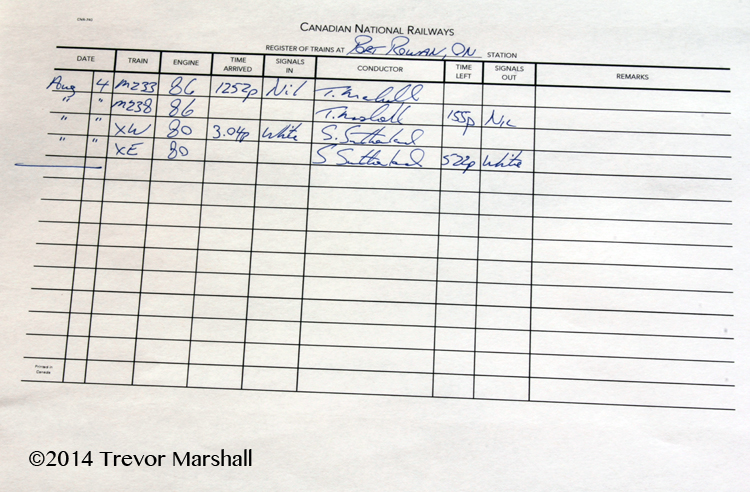 CNR-740
CANADIAN NATIONAL RAILWAYS
REGISTER OF TRAINS AT PORT ROWAN, ON STATION
DATE TRAIN ENGINE TIME ARRIVED SIGNALS IN CONDUCTOR TIME LEFT SIGNALS OUT REMARKS
Aug 4 M233 86 1252p Nil T. Marshall
" " M238 86 T. Marshall 155p Nil
" " XW 80 3.04p White S. Sutherland
" " XE 80 S Sutherland 522p White
Printed in
Canada
©2014 Trevor Marshall